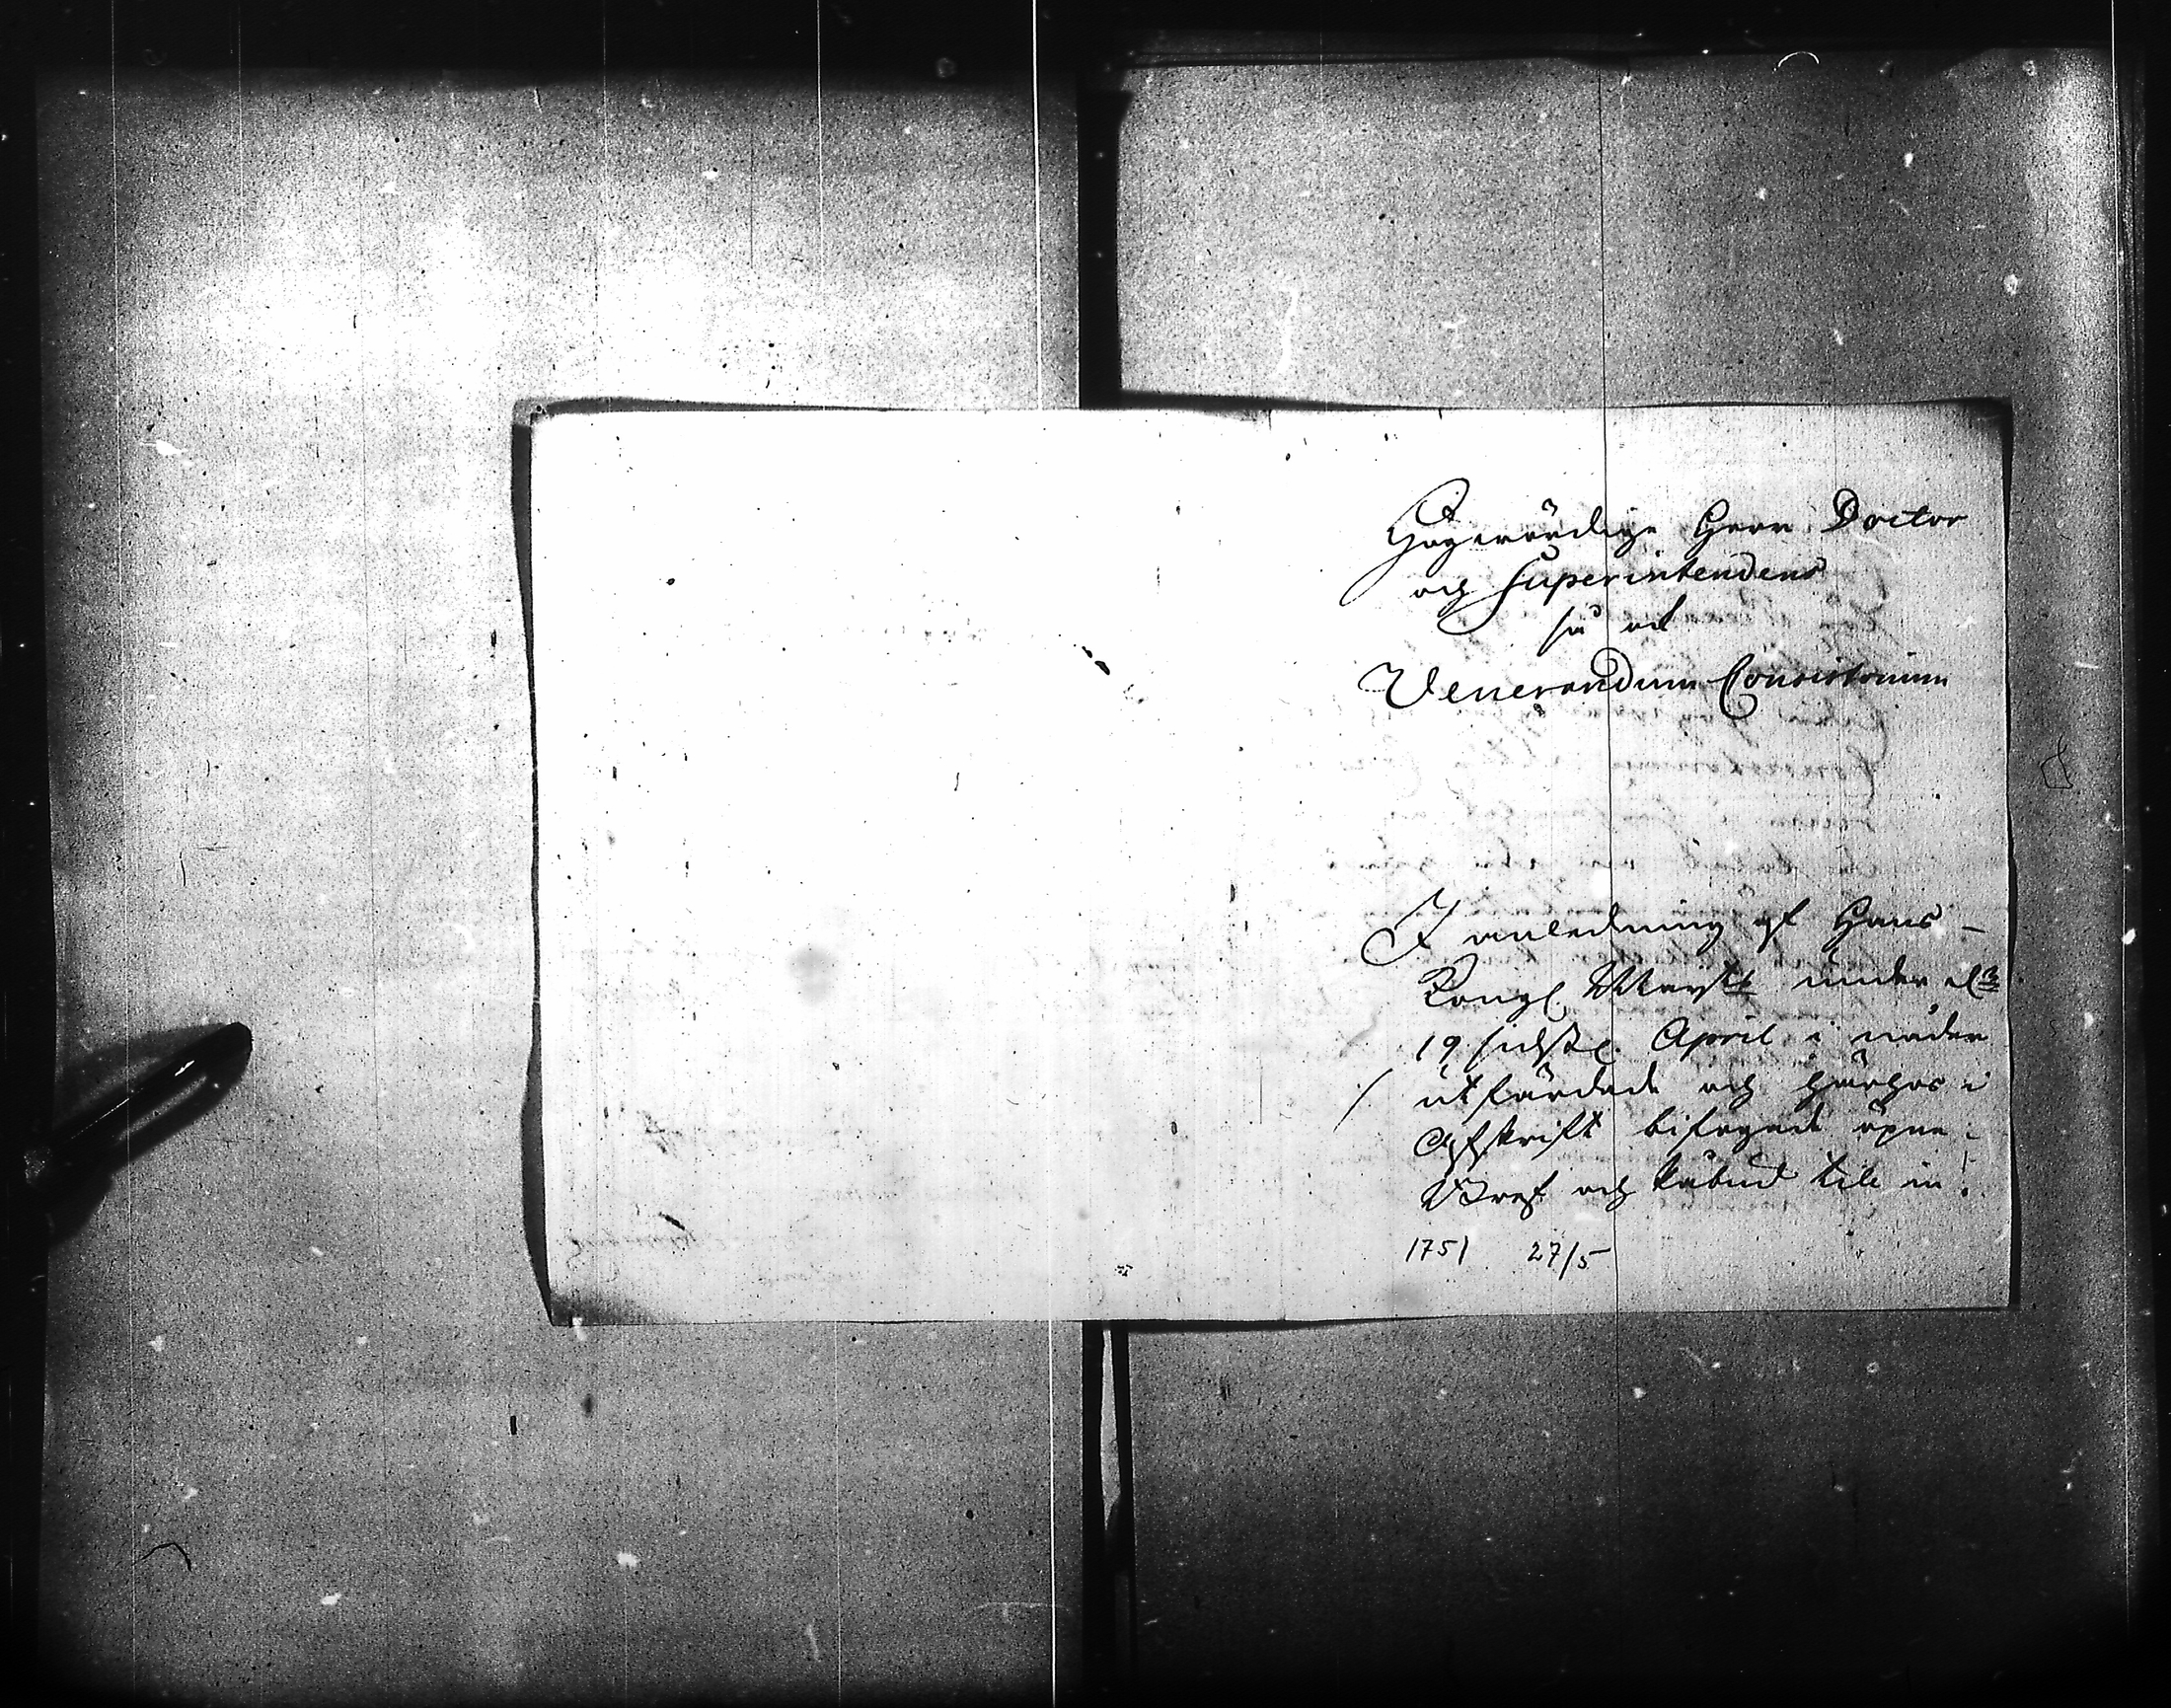 Högwördige Herr Doctor
och Superintendens
så ock
Venerandum Consistorium
I anledning af Hans
Kongl. Maij:tts under d:n
19 sidstl. April i nåder
utfärdade och härhos i
Afskrift bifogade öpne
Bref och Påbud till in:
1751 27/5